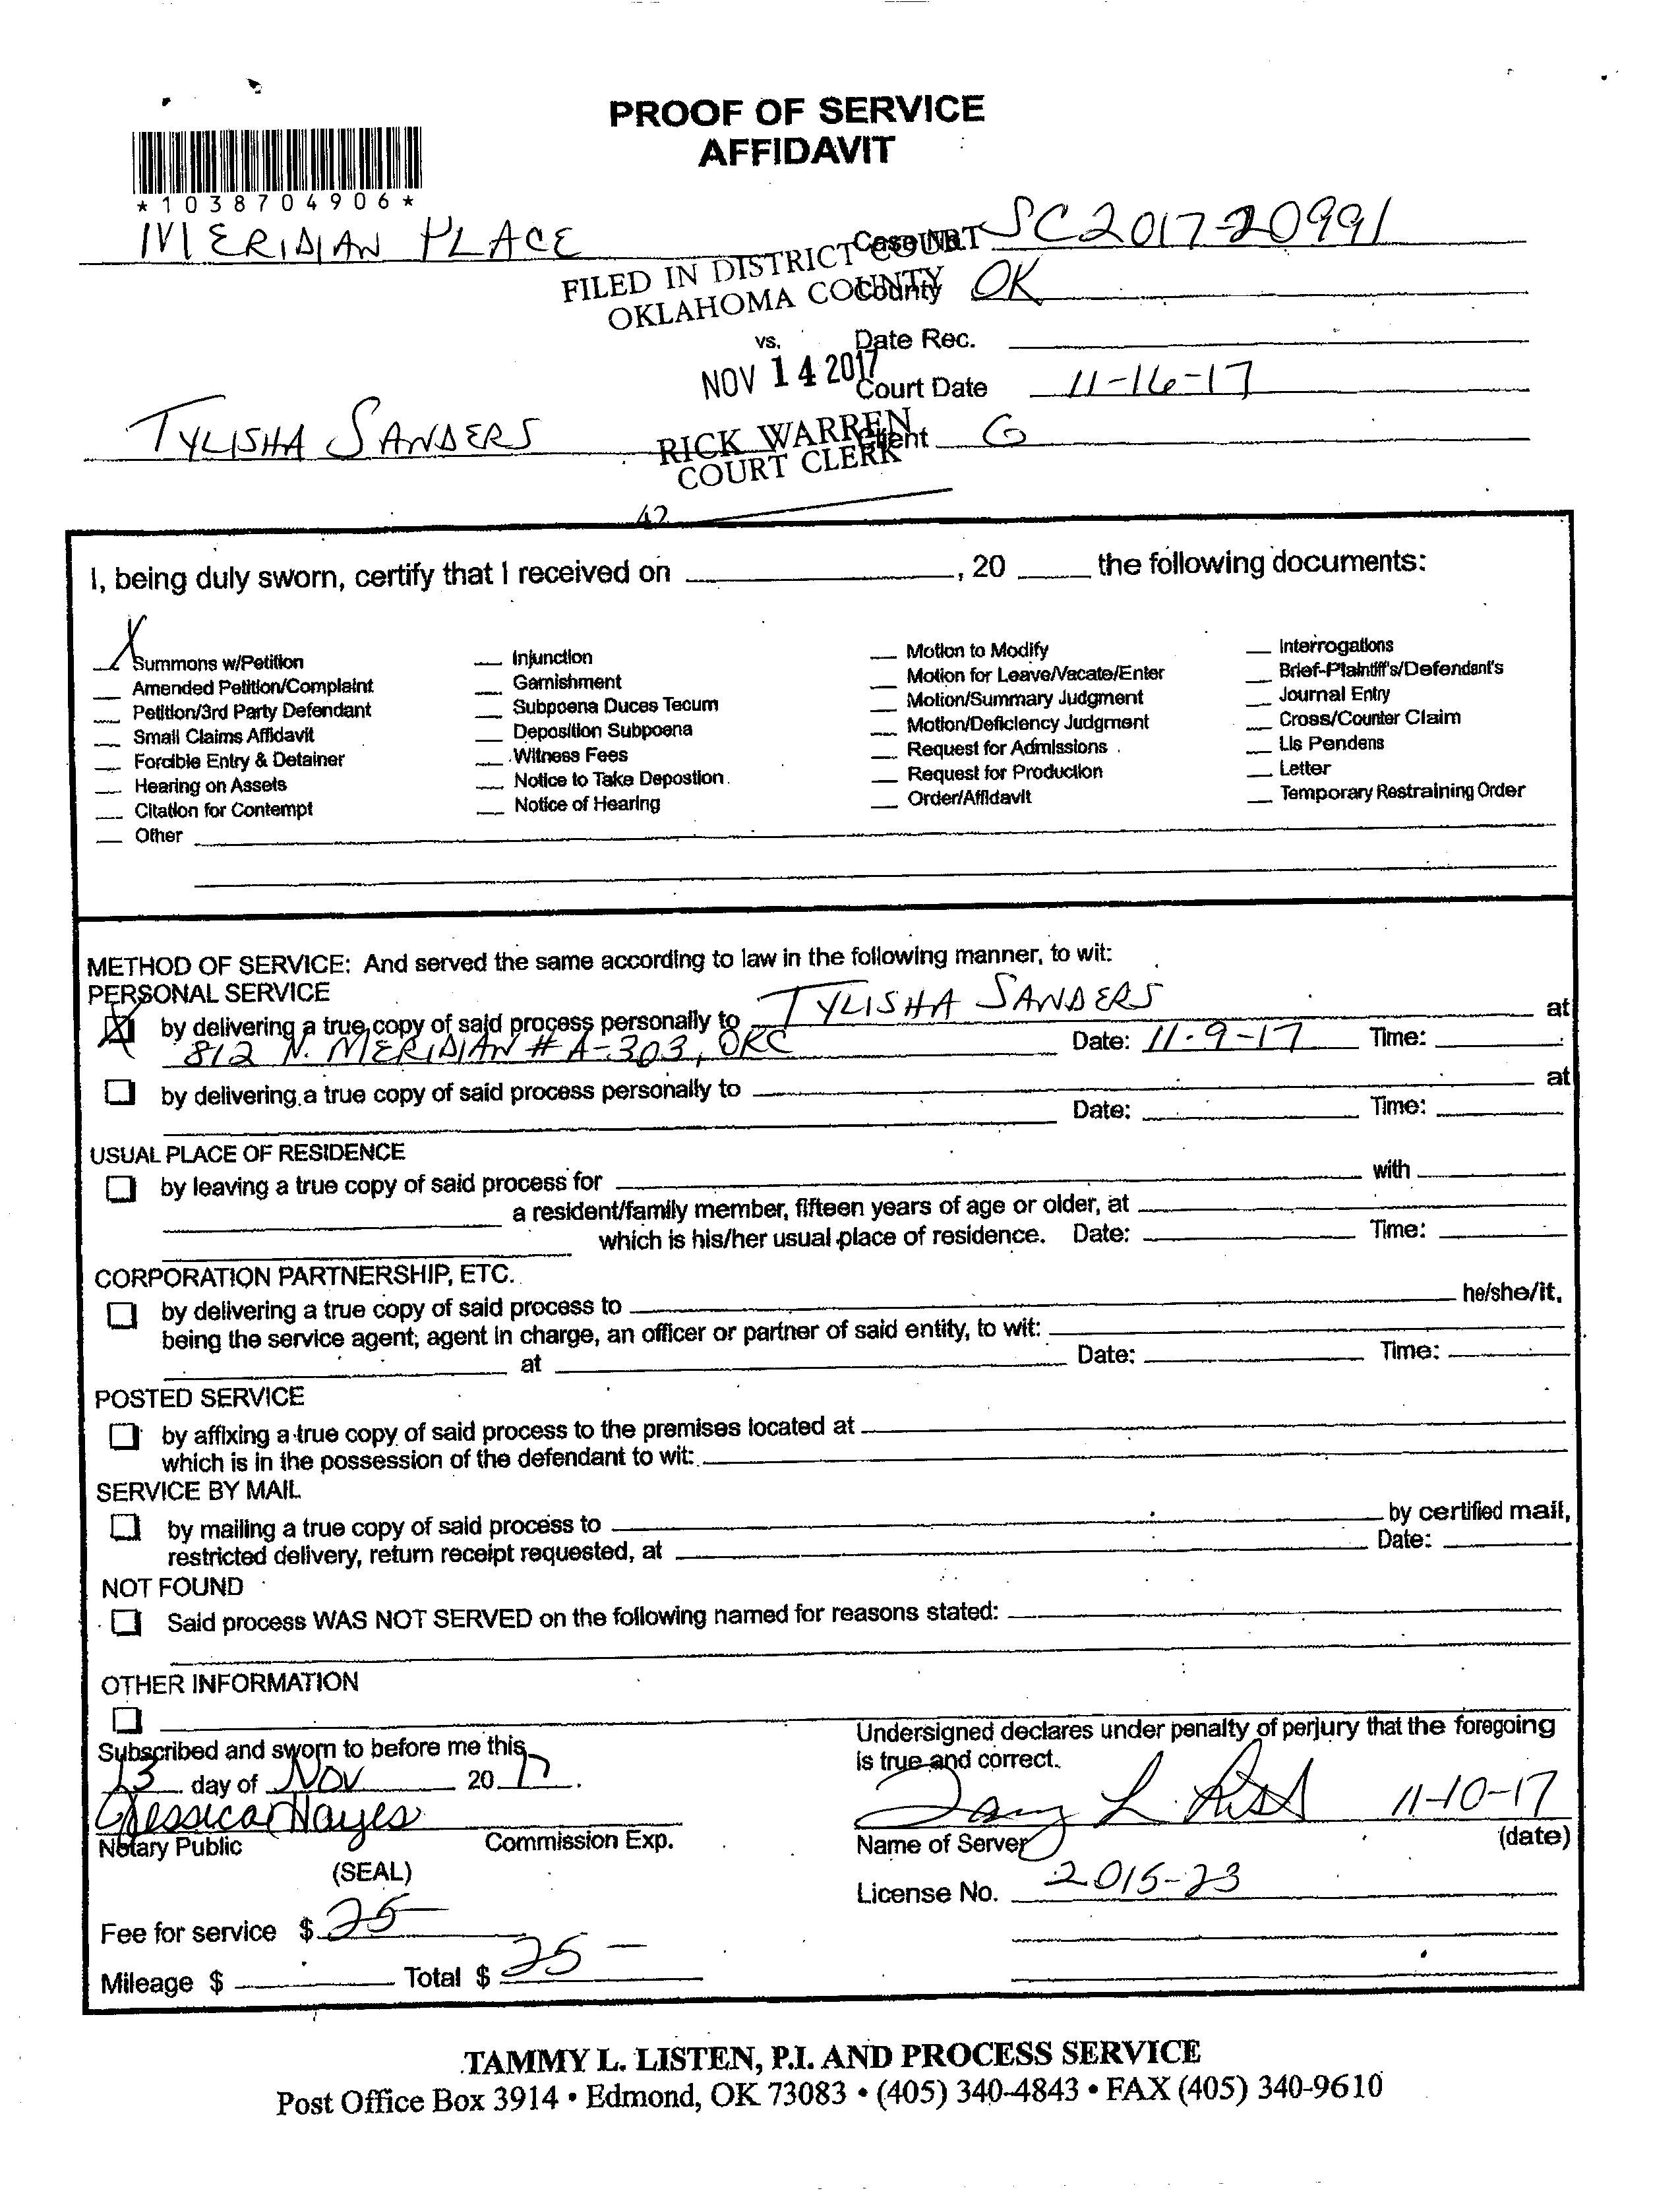 PROOF OF SERVICE
AFFIDAVIT
*1038704906*
MERIDIAN PLACE
Case No. SC2017-20991
FILED IN DISTRICT COURT
OKLAHOMA COUNTY
County OK
vs.
Date Rec.
NOV 14 2017
Court Date 11-16-17
TYLISHA SANDERS
RICK WARREN
COURT CLERK
Client G
42
I, being duly sworn, certify that I received on ____, 20 ____ the following documents:
X Summons w/Petition
Amended Petition/Complaint
Petition/3rd Party Defendant
Small Claims Affidavit
Forcible Entry & Detainer
Hearing on Assets
Citation for Contempt
Other
Injunction
Garnishment
Subpoena Duces Tecum
Deposition Subpoena
Witness Fees
Notice to Take Depostion
Notice of Hearing
Motion to Modify
Motion for Leave/Vacate/Enter
Motion/Summary Judgment
Motion/Deficiency Judgment
Request for Admissions
Request for Production
Order/Affidavit
Interrogations
Brief-Plaintiff's/Defendant's
Journal Entry
Cross/Counter Claim
Lis Pendens
Letter
Temporary Restraining Order
METHOD OF SERVICE: And served the same according to law in the following manner, to wit:
PERSONAL SERVICE
X by delivering a true copy of said process personally to TYLISHA SANDERS at
812 N. MERIDIAN # A-303, OKC Date: 11-9-17 Time:
by delivering a true copy of said process personally to ____ at
Date: ____ Time:
USUAL PLACE OF RESIDENCE
by leaving a true copy of said process for ____ with
a resident/family member, fifteen years of age or older, at
which is his/her usual place of residence. Date: ____ Time:
CORPORATION PARTNERSHIP, ETC.
by delivering a true copy of said process to ____ he/she/it,
being the service agent, agent in charge, an officer or partner of said entity, to wit:
at ____ Date: ____ Time:
POSTED SERVICE
by affixing a true copy of said process to the premises located at
which is in the possession of the defendant to wit:
SERVICE BY MAIL
by mailing a true copy of said process to ____ by certified mail,
restricted delivery, return receipt requested, at ____ Date:
NOT FOUND
Said process WAS NOT SERVED on the following named for reasons stated:
OTHER INFORMATION
Subscribed and sworn to before me this
13 day of Nov 2017.
Jessica Hayes
Notary Public Commission Exp.
(SEAL)
Fee for service $ 25-
Mileage $ ____ Total $ 25-
Undersigned declares under penalty of perjury that the foregoing
is true and correct.
11-10-17
Name of Server (date)
License No. 2015-23
TAMMY L. LISTEN, P.I. AND PROCESS SERVICE
Post Office Box 3914 • Edmond, OK 73083 • (405) 340-4843 • FAX (405) 340-9610